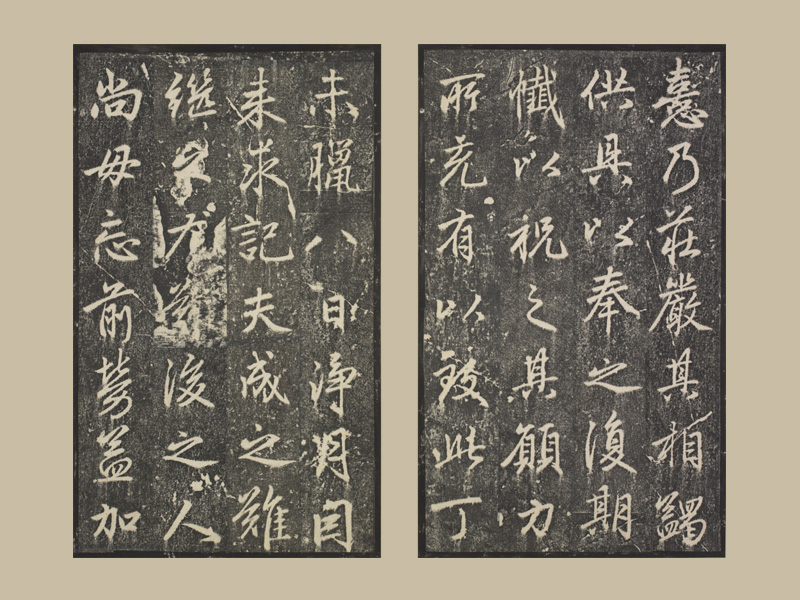 憙乃莊嚴其相蠲
供具以奉之復期
懺以祝之其願力
所充有以致此丁
未臘八日淨明因
来求記夫成之難
継尤後之人
尚毋忘前勞益加